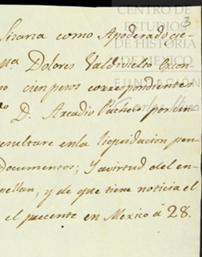 CENTRO DE
ESTUDIOS
DE HISTORIA
3
como Apoderado ge-
Dolores Valdivielso
cien pesos correspondientes
D. Arcadio Pacheco por
resultare en la liquidacion pen-
Documentos; y avirtud del en-
y de que tiene noticia el
el precente en Mexico á 28.